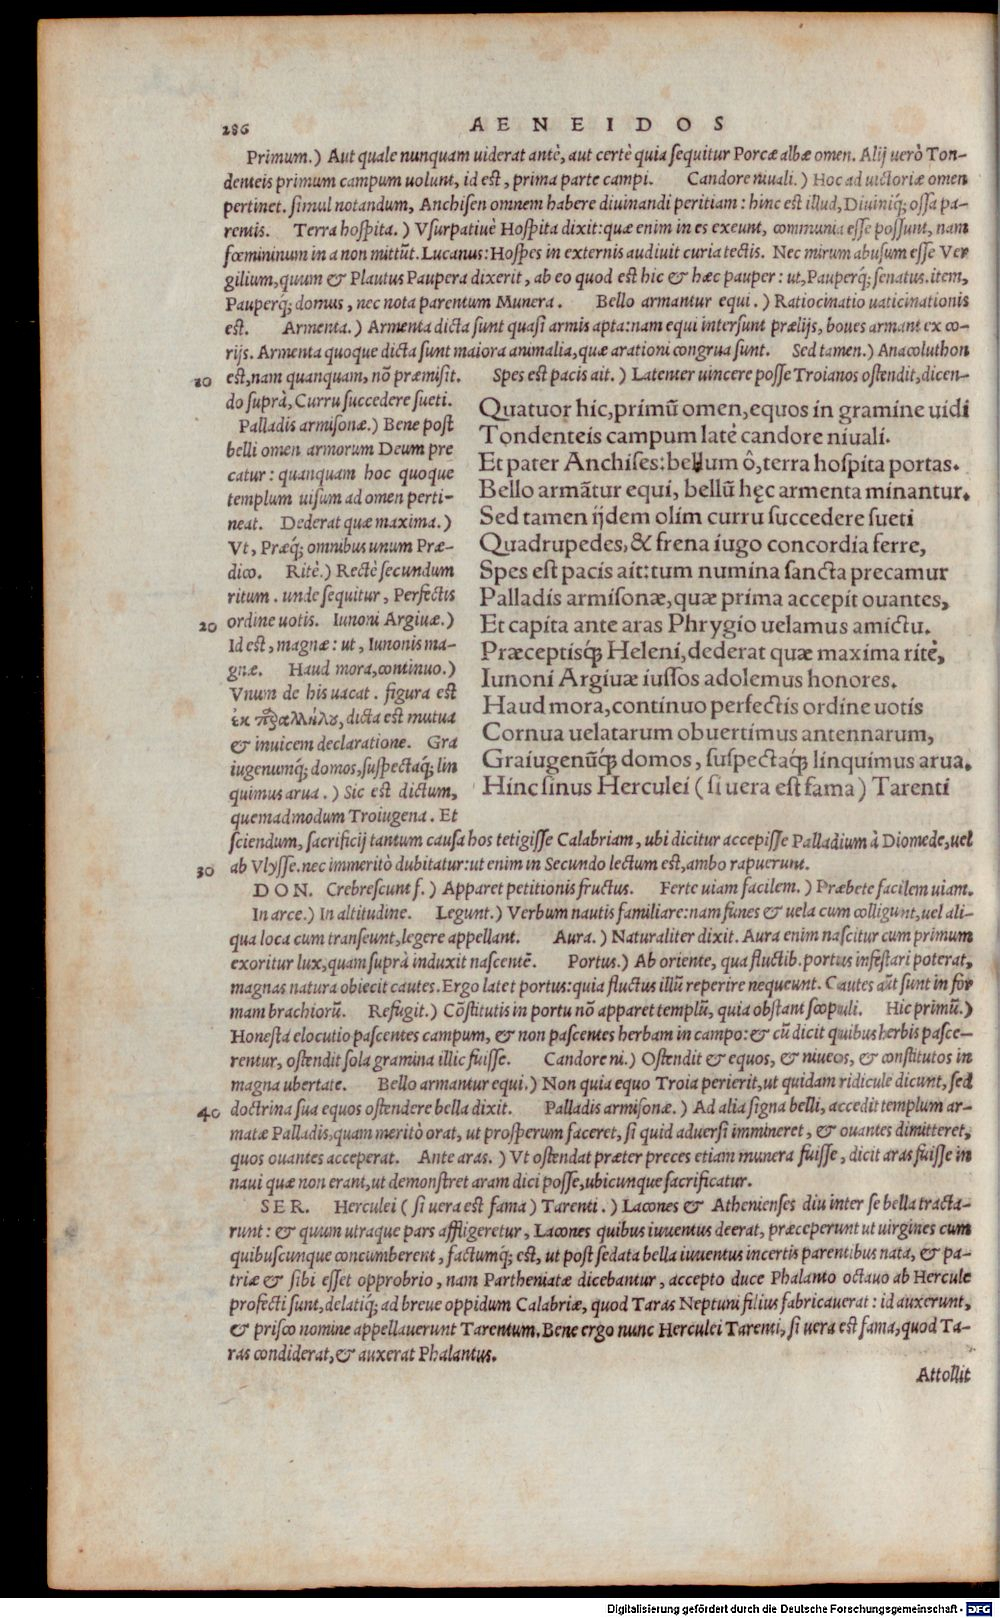 286 AENEIDOS
Primum.) Aut quale nunquam uiderat antè, aut certè quia sequitur Porcæ albæ omen. Alij uerò Ton-
denteis primum campum uolunt, id est, prima parte campi. Candore niuali.) Hoc ad uictoriæ omen
pertinet. simul notandum, Anchisen omnem habere diuinandi peritiam: hinc est illud, Diuiniq́; ossa pa-
rentis. Terra hospita.) Vsurpatiuè Hospita dixit: quæ enim in es exeunt, communia esse possunt, nam
fœmininum in a non mittũt. Lucanus: Hospes in externis audiuit curia tectis. Nec mirum abusum esse Ver
gilium, quum & Plautus Paupera dixerit, ab eo quod est hic & hæc pauper: ut, Pauperq́; senatus. item,
Pauperq́; domus, nec nota parentum Munera. Bello armantur equi.) Ratiocinatio uaticinationis
est. Armenta.) Armenta dicta sunt quasi armis apta: nam equi intersunt prælijs, boues armant ex co-
rijs. Armenta quoque dicta sunt maiora animalia, quæ arationi congrua sunt. Sed tamen.) Anacoluthon
10 est, nam quanquam, nõ præmisit. Spes est pacis ait.) Latenter uincere posse Troianos ostendit, dicen-
do suprà, Curru succedere sueti.
Palladis armisonæ.) Bene post
belli omen armorum Deum pre
catur: quanquam hoc quoque
templum uisum ad omen perti-
neat. Dederat quæ maxima.)
Vt, Præq́; omnibus unum Præ-
dico. Ritè.) Rectè secundum
ritum. unde sequitur, Perfectis
20 ordine uotis. Iunoni Argiuæ.)
Id est, magnæ: ut, Iunonis ma-
gnæ. Haud mora, continuo.)
Vnum de his uacat. figura est
ἐκ παραλλήλου, dicta est mutua
& inuicem declaratione. Gra
iugenumq́; domos, suspectaq́; lin
quimus arua.) Sic est dictum,
quemadmodum Troiugena. Et
Quatuor hic, primũ omen, equos in gramine uidi
Tondenteis campum latè candore niuali.
Et pater Anchises: bellum ô, terra hospita portas.
Bello armãtur equi, bellũ hęc armenta minantur.
Sed tamen ijdem olim curru succedere sueti
Quadrupedes, & frena iugo concordia ferre,
Spes est pacis ait: tum numina sancta precamur
Palladis armisonæ, quæ prima accepit ouantes,
Et capita ante aras Phrygio uelamus amictu.
Præceptisq́; Heleni, dederat quæ maxima ritè,
Iunoni Argiuæ iussos adolemus honores.
Haud mora, continuo perfectis ordine uotis
Cornua uelatarum obuertimus antennarum,
Graiugenũq́; domos, suspectaq́; linquimus arua.
Hinc sinus Herculei (si uera est fama) Tarenti
sciendum, sacrificij tantum causa hos tetigisse Calabriam, ubi dicitur accepisse Palladium à Diomede, uel
30 ab Vlysse. nec immeritò dubitatur: ut enim in Secundo lectum est, ambo rapuerunt.
DON. Crebrescunt s.) Apparet petitionis fructus. Ferte uiam facilem.) Præbete facilem uiam.
In arce.) In altitudine. Legunt.) Verbum nautis familiare: nam funes & uela cum colligunt, uel ali-
qua loca cum transeunt, legere appellant. Aura.) Naturaliter dixit. Aura enim nascitur cum primum
exoritur lux, quam suprà induxit nascentẽ. Portus.) Ab oriente, qua fluctib. portus infestari poterat,
magnas natura obiecit cautes. Ergo latet portus: quia fluctus illũ reperire nequeunt. Cautes aũt sunt in for
mam brachiorũ. Refugit.) Cõstitutis in portu nõ apparet templũ, quia obstant scopuli. Hic primũ.)
Honesta elocutio pascentes campum, & non pascentes herbam in campo: & cũ dicit quibus herbis pasce-
rentur, ostendit sola gramina illic fuisse. Candore ni.) Ostendit & equos, & niueos, & constitutos in
magna ubertate. Bello armantur equi.) Non quia equo Troia perierit, ut quidam ridicule dicunt, sed
40 doctrina sua equos ostendere bella dixit. Palladis armisonæ.) Ad alia signa belli, accedit templum ar-
matæ Palladis, quam meritò orat, ut prosperum faceret, si quid aduersi immineret, & ouantes dimitteret,
quos ouantes acceperat. Ante aras.) Vt ostendat præter preces etiam munera fuisse, dicit aras fuisse in
naui quæ non erant, ut demonstret aram dici posse, ubicunque sacrificatur.
SER. Herculei (si uera est fama) Tarenti.) Lacones & Athenienses diu inter se bella tracta-
runt: & quum utraque pars affligeretur, Lacones quibus iuuentus deerat, præceperunt ut uirgines cum
quibuscunque concumberent, factumq́; est, ut post sedata bella iuuentus incertis parentibus nata, & pa-
triæ & sibi esset opprobrio, nam Partheniatæ dicebantur, accepto duce Phalanto octauo ab Hercule
profecti sunt, delatiq́; ad breue oppidum Calabriæ, quod Taras Neptuni filius fabricauerat: id auxerunt,
& prisco nomine appellauerunt Tarentum. Bene ergo nunc Herculei Tarenti, si uera est fama, quod Ta-
ras condiderat, & auxerat Phalantus.
Attollit
Digitalisierung gefördert durch die Deutsche Forschungsgemeinschaft - DFG